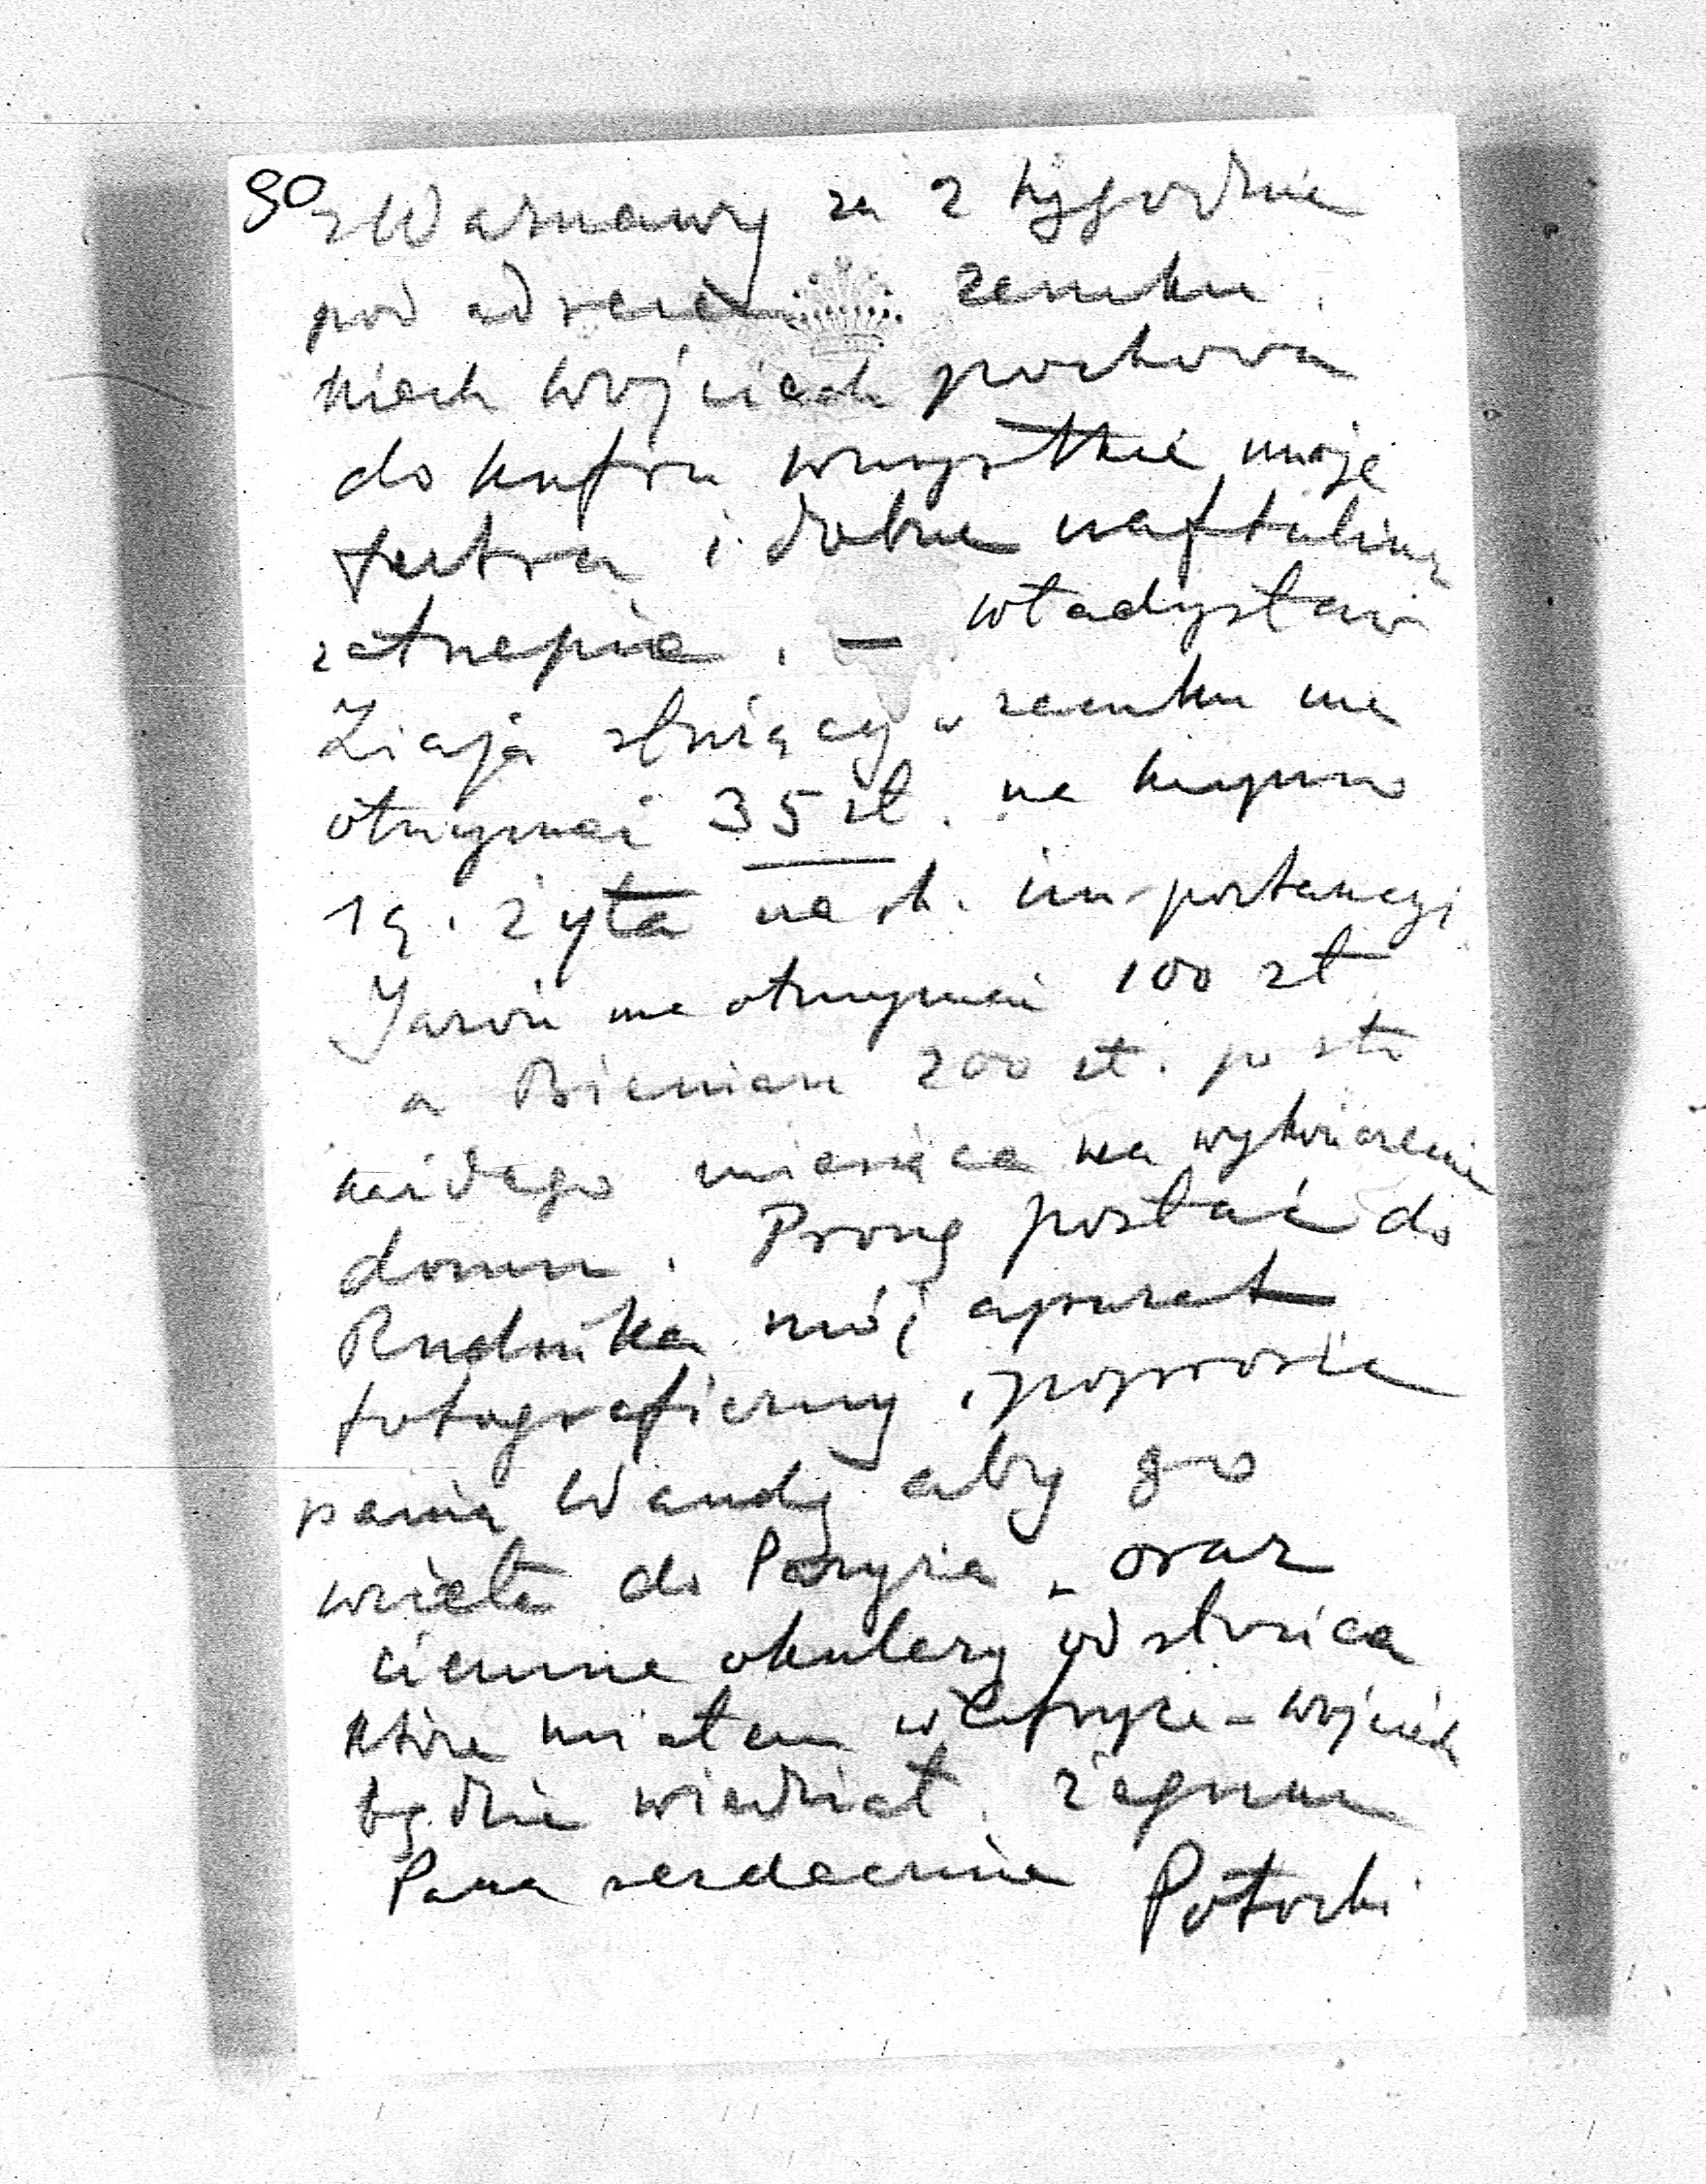 90
z Warszawy za 2 tygodnie
pod adresem zamku.
Niech Wojciech pochowa
do kufra wszystkie moje
futra i dobrze naftaliną
zatrzepie. — Władysław
Ziaja służący w zamku ma
otrzymać 35 zł. na kupno
1 q. żyta na
Jaroń ma otrzymać 100 zł
a Bieniasz 200 zł. po sto
każdego miesiąca na wykończenie
domu. Proszę posłać do
Rudnika mój aparat
fotograficzny i poprosić
panią Wandę aby go
wzięła do Paryża - oraz
ciemne okulary od słońca
które miałem w Afryce - Wojciech
będzie wiedział. Żegnam
Pana serdecznie Potocki